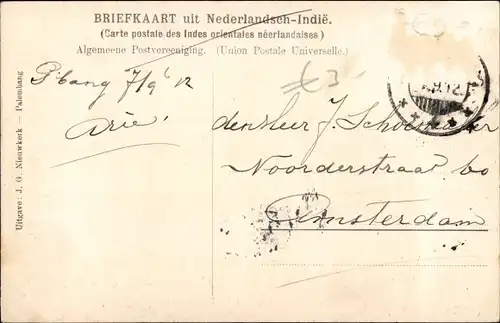 BRIEFKAART uit Nederlandsch-Indië.
(Carte postale des Indes orientales néerlandaises)
Algemeene Postvereeniging. (Union Postale Universelle.)
P'bang 7/9' 12
Arie.
den Heer J. Schoemaker
Noorderstraat 60
Amsterdam
Uitgave: J. G. Nieuwkerk — Palembang